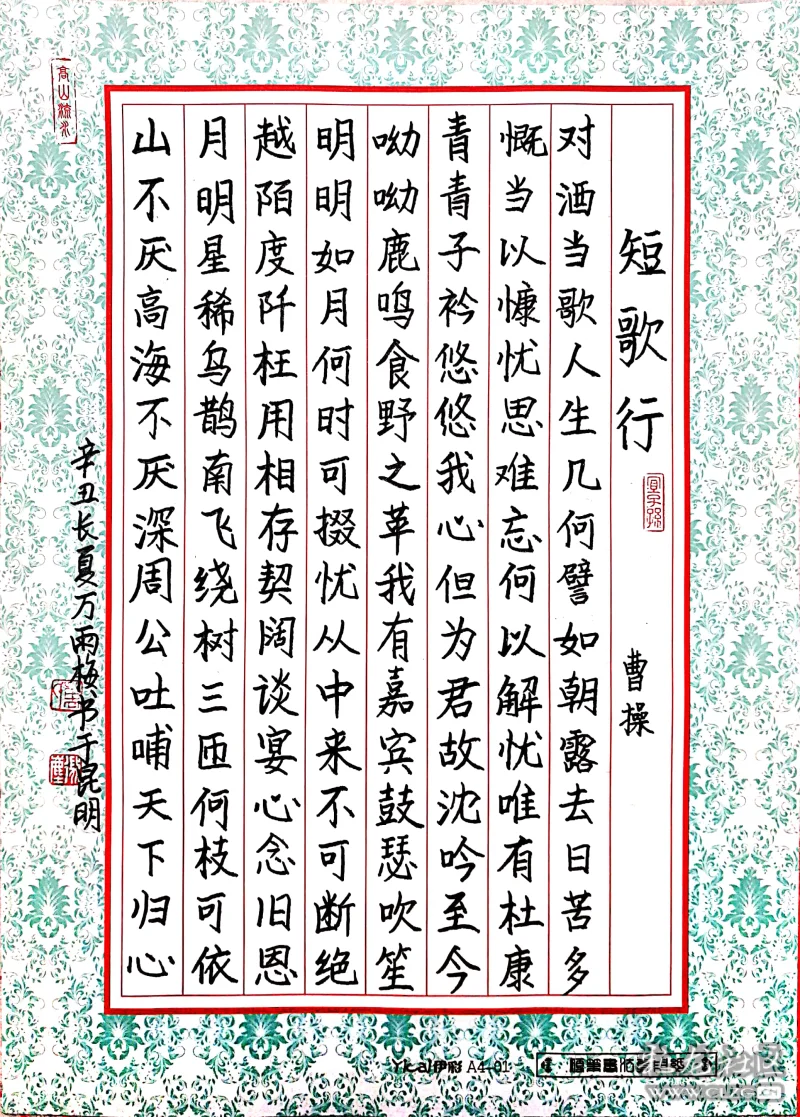 短歌行
曹操
对酒当歌人生几何譬如朝露去日苦多
慨当以慷忧思难忘何以解忧唯有杜康
青青子衿悠悠我心但为君故沈吟至今
呦呦鹿鸣食野之苹我有嘉宾鼓瑟吹笙
明明如月何时可掇忧从中来不可断绝
越陌度阡枉用相存契阔谈宴心念旧恩
月明星稀乌鹊南飞绕树三匝何枝可依
山不厌高海不厌深周公吐哺天下归心
辛丑长夏万雨梅书于昆明
高山流水
Yicai伊彩 A4-01